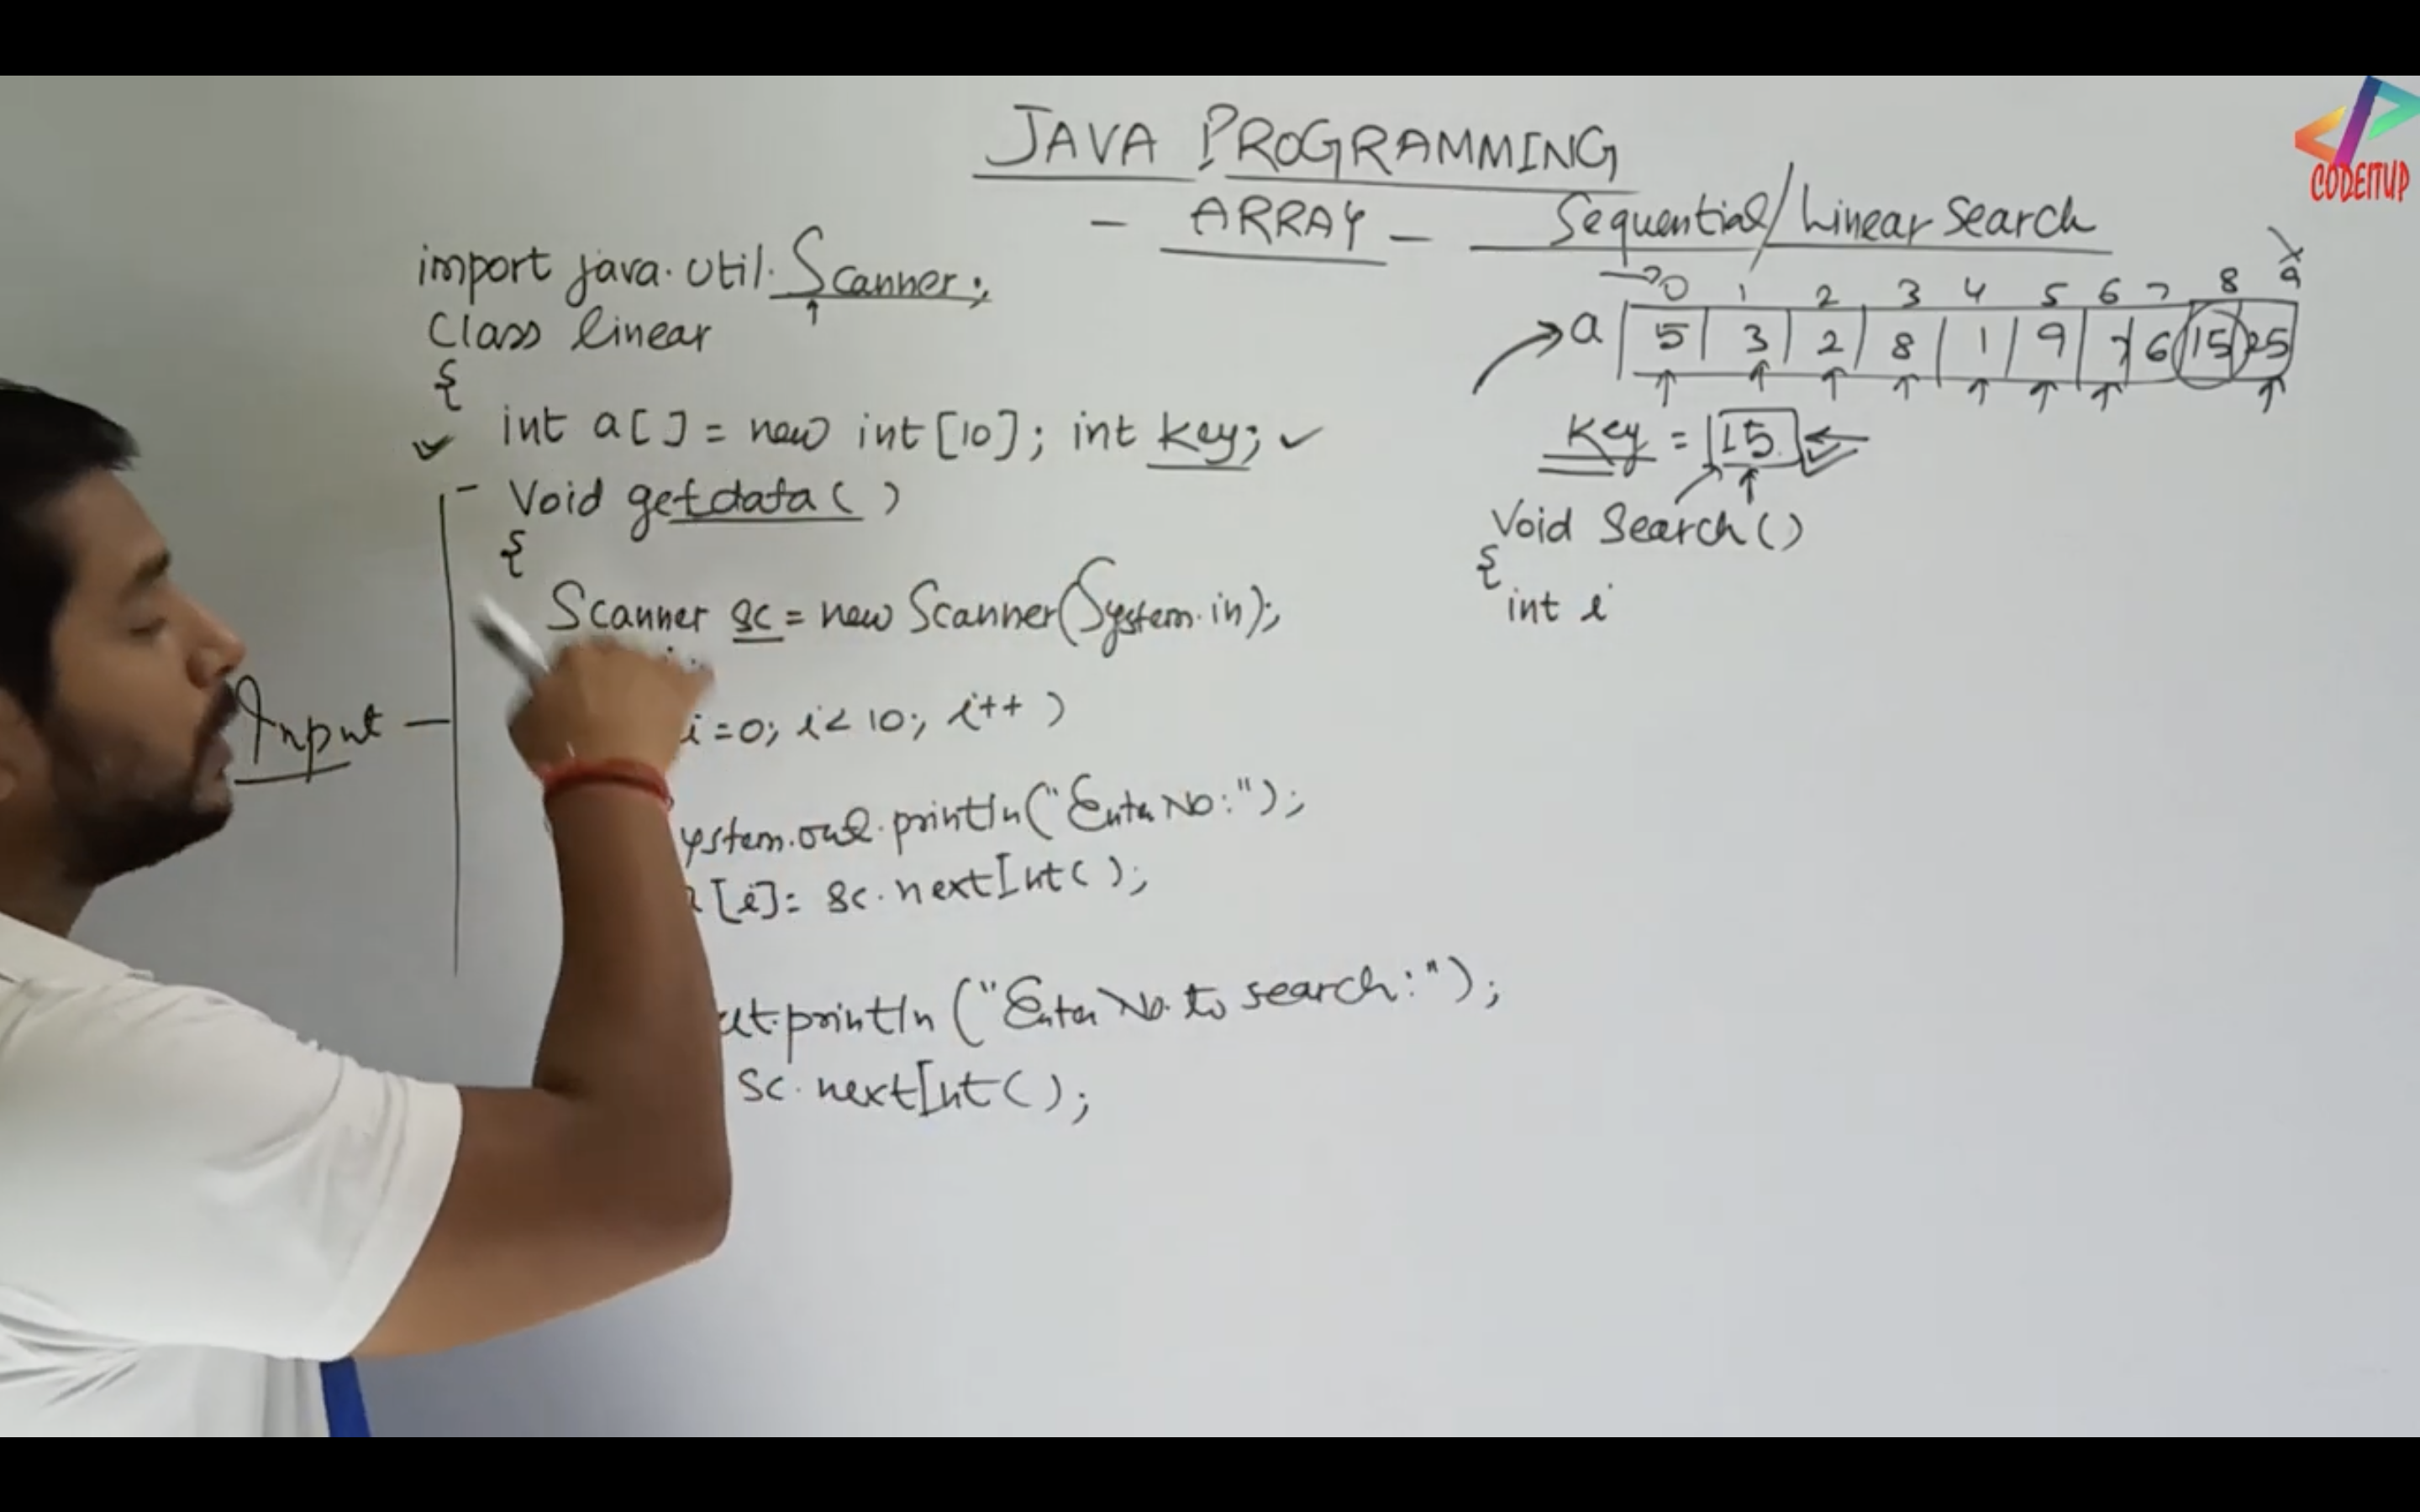 JAVA PROGRAMMING
- ARRAY - Sequential/Linear Search
CODEITUP
import java.util.Scanner;
Class linear
{
int a[] = new int[10]; int key; ✓
Void getdata( )
{
Scanner sc = new Scanner(System.in);
i=0; i<10; i++ )
ystem.out.println("Enter No:");
[i]= sc.nextInt( );
ut.println("Enter No. to search:");
sc.nextInt( );
Input
0 1 2 3 4 5 6 7 8 9
a 5 3 2 8 1 9 7 6 15 25
Key = 15
Void Search()
{
int i